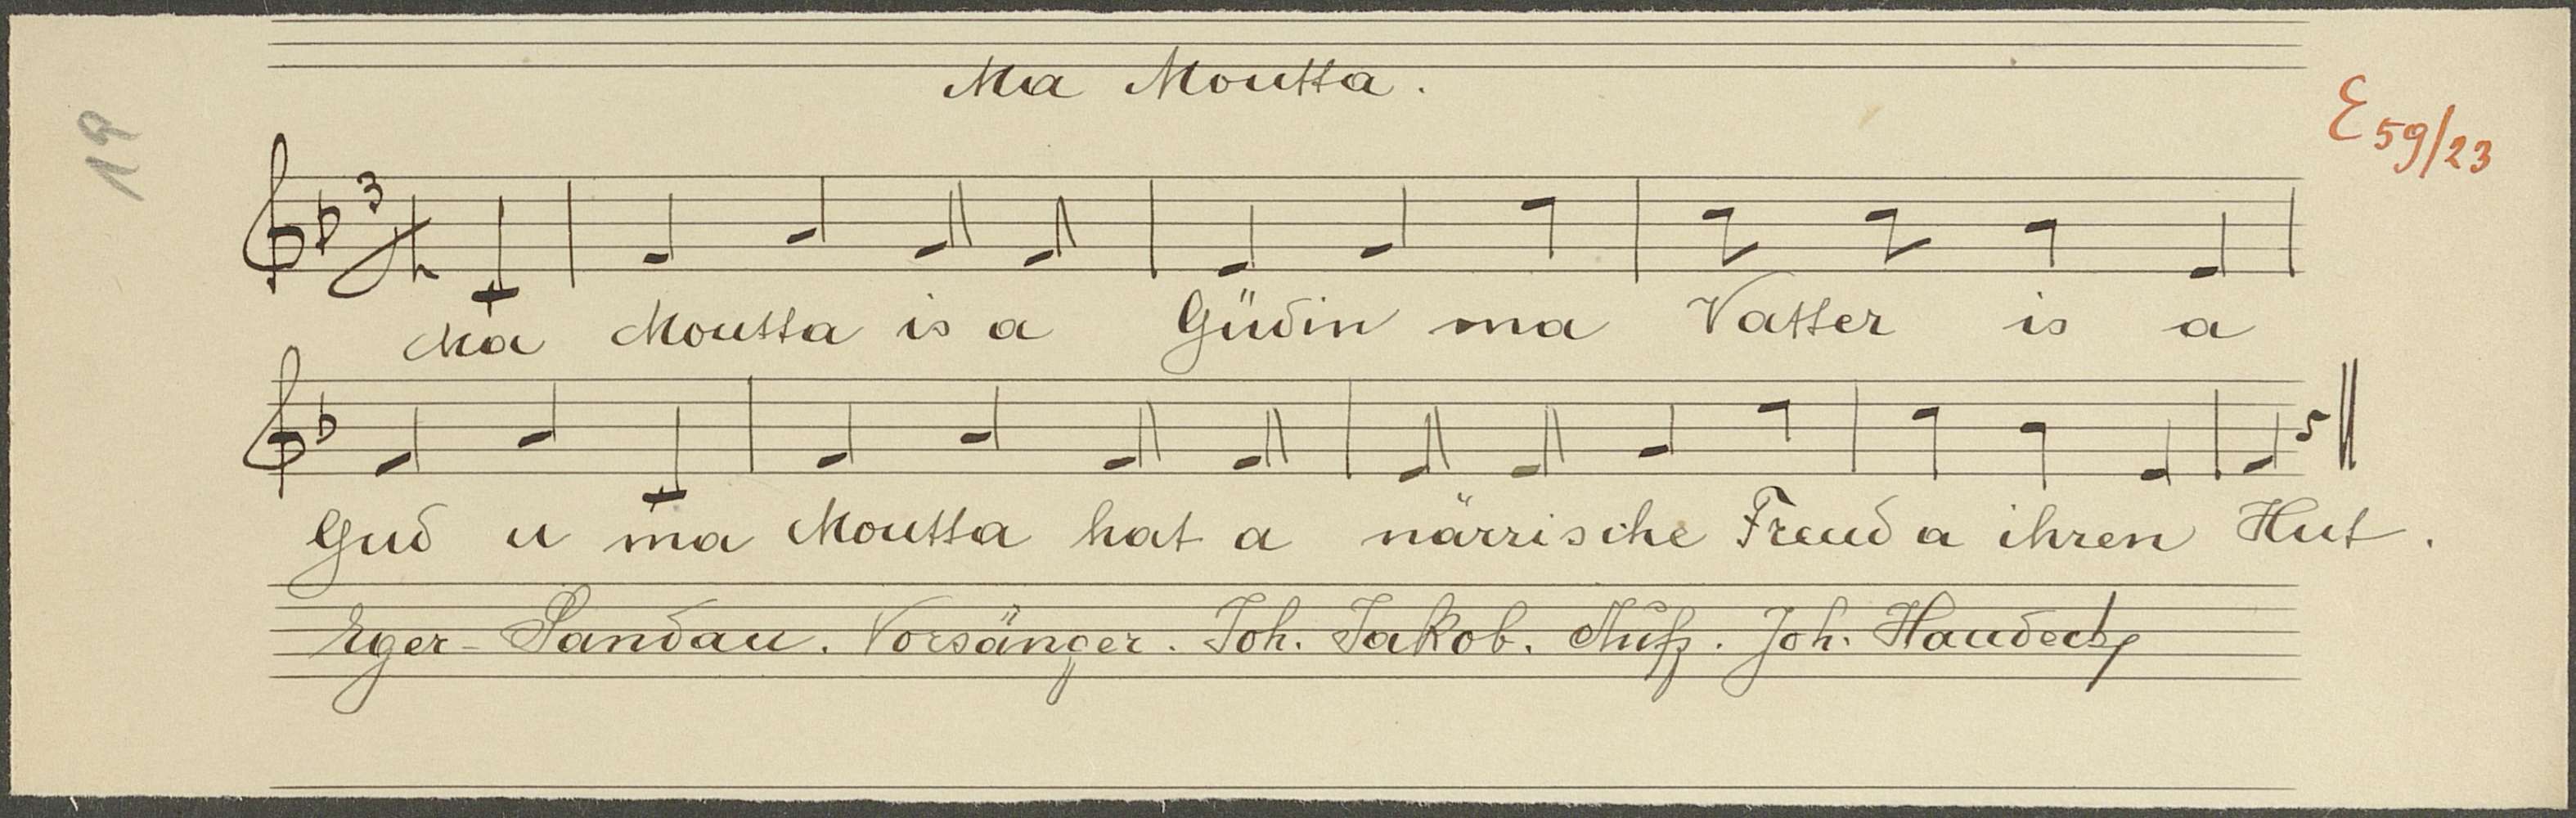 Ma Moutta.
E 59/23
19
3
Ma Moutta is a Güdin ma Vatter is a
Gud u ma Moutta hat a närrische Freud a ihren Hut.
Eger-Sandau. Vorsänger. Joh. Jakob. Aufz. Joh. Haudeck